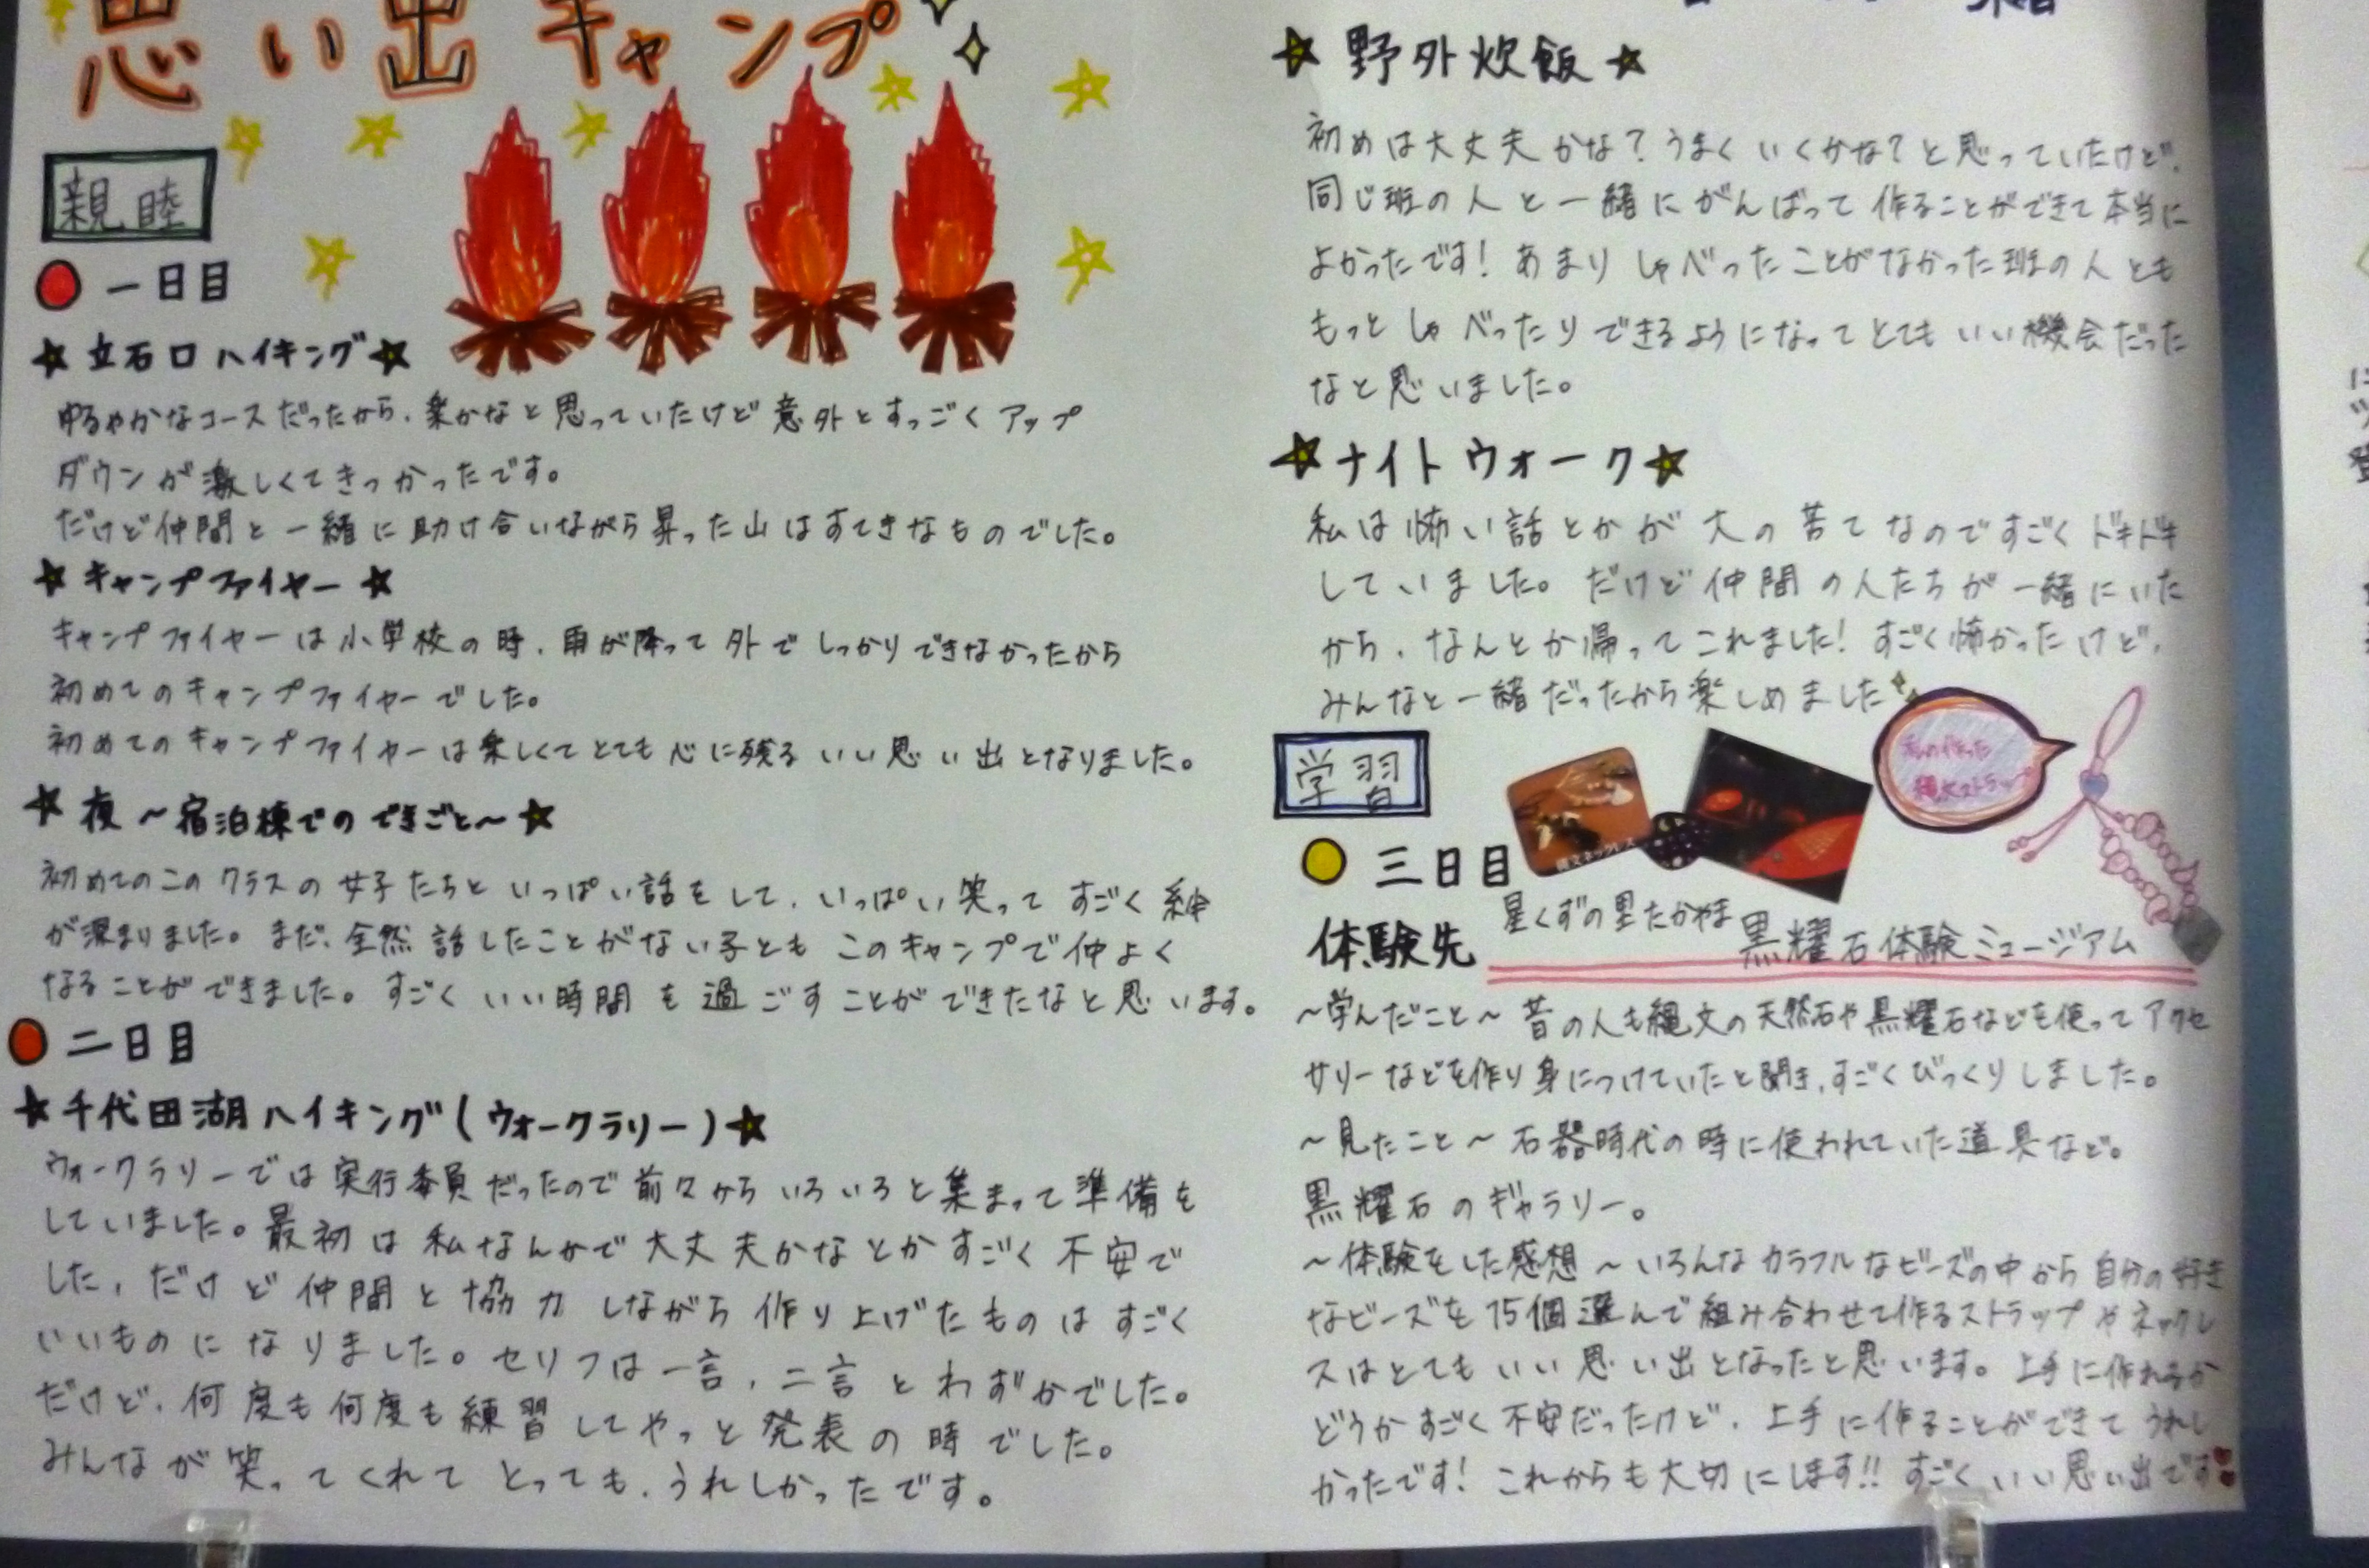 思い出キャンプ
親睦
一日目
★立石口ハイキング★
ゆるやかなコースだったから、楽かなと思っていたけど意外とすっごくアップ
ダウンが激しくてきつかったです。
だけど仲間と一緒に助け合いながら昇った山はすてきなものでした。
★キャンプファイヤー★
キャンプファイヤーは小学校の時、雨が降って外でしっかりできなかったから
初めてのキャンプファイヤーでした。
初めてのキャンプファイヤーは楽しくてとても心に残るいい思い出となりました。
★夜~宿泊棟でのできごと~★
初めてのこのクラスの女子たちといっぱい話をして、いっぱい笑ってすごく絆
が深まりました。まだ、全然話したことがない子ともこのキャンプで仲よく
なることができました。すごくいい時間を過ごすことができたなと思います。
二日目
★千代田湖ハイキング(ウォークラリー)★
ウォークラリーでは実行委員だったので前々からいろいろと集まって準備を
していました。最初は私なんかで大丈夫かなとかすごく不安で
した、だけど仲間と協力しながら作り上げたものはすごく
いいものになりました。セリフは一言、二言とわずかでした。
だけど、何度も何度も練習してやっと発表の時でした。
みんなが笑ってくれてとっても、うれしかったです。
★野外炊飯★
初めは大丈夫かな?うまくいくかな?と思っていたけど、
同じ班の人と一緒にがんばって作ることができて本当に
よかったです!あまりしゃべったことがなかった班の人とも
もっとしゃべったりできるようになってとてもいい機会だった
なと思いました。
★ナイトウォーク★
私は怖い話とかが大の苦てなのですごくドキドキ
していました。だけど仲間の人たちが一緒にいた
から、なんとか帰ってこれました!すごく怖かったけど、
みんなと一緒だったから楽しめました
私の作った
縄文ストラップ
学習
縄文ネックレス
三日目
体験先 星くずの里たかやま 黒耀石体験ミュージアム
~学んだこと~昔の人も縄文の天然石や黒耀石などを使ってアクセ
サリーなどを作り身につけていたと聞き、すごくびっくりしました。
~見たこと~石器時代の時に使われていた道具など。
黒耀石のギャラリー。
~体験をした感想~いろんなカラフルなビーズの中から自分の好き
なビーズを15個選んで組み合わせて作るストラップやネックレ
スはとてもいい思い出となったと思います。上手に作れるか
どうかすごく不安だったけど、上手に作ることができてうれし
かったです!これからも大切にします!!すごくいい思い出です